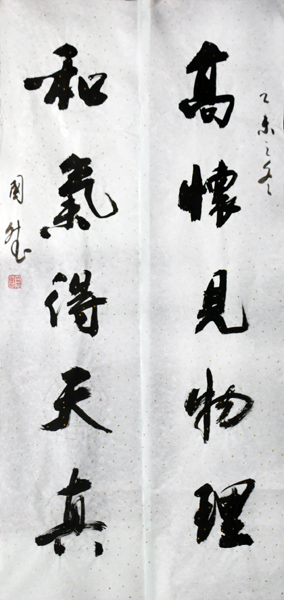 乙未之冬
高懷見物理
和氣得天真